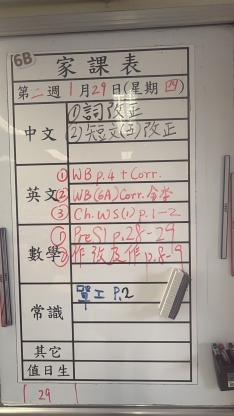 6B
家課表
第二週 1月29日(星期四)
中文 ①詞改正
(2)短文(五)改正
① WB p.4 + Corr.
英文 ② WB(6A) Corr. 全本
③ Ch. WS(1) p.1-2
數學 ① PreS1 p.28-29
② 作 及作 p.8-9
常識 單工 P.2
其它
值日生
1 29 1